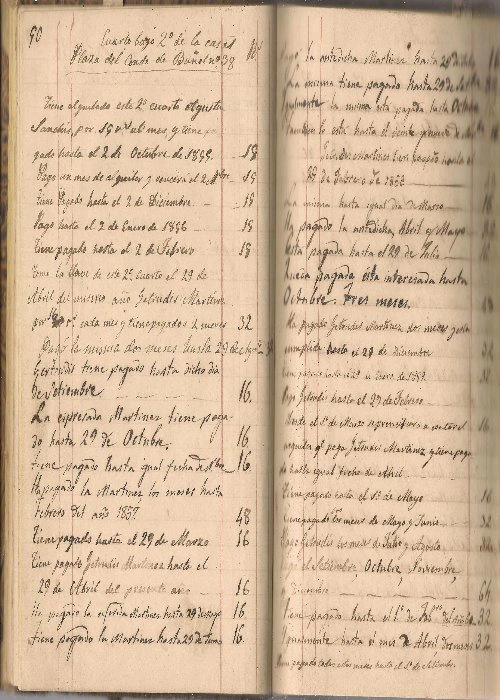 90
Cuarto bajo 2º de la casa
Plaza del Conde de Buñol nº 38
Tiene alquilado este 2º cuarto Agustin
Sanchis, por 18 r. al mes, y tiene pa
gado hasta el 2 de Octubre de 1855. 18
Pago un mes de alquiler y vencerá el 2 18
Tiene Pagado hasta el 2 de Diciembre 18
Pago hasta el 2 de Enero de 1856 18
Tiene pagado hasta el 2 de Febrero 18
Tomó la llave de este 2º cuarto el 29 de
Abril del mismo año Getrudis Martinez
por 16 r. cada mes y tiene pagados 2 meses 32
Pagó la misma dos meses hasta 29 de Agto
Gertrudis tiene pagado hasta dicho dia
de Setiembre 16
La espresada Martinez tiene paga-
do hasta 29 de Octubre. 16
tiene pagado hasta igual fecha de 16
Ha pagado la Martinez tres meses hasta
Febrero del año 1857 48
Tiene pagado hasta el 29 de Marzo 16
Tiene pagado Getrudes Martinez hasta el
29 de Abril del presente año 16
Ha pagado la referida Martinez hasta 29 de Mayo 16
Tiene pagado la Martinez hasta 29 de Junio 16
la antedicha Martinez hasta 29 de
La misma tiene pagado hasta 29 de
Igualmente la misma esta pagada hasta Octubre
tambien lo está hasta el veinte y nueve de
de Febrero de 1858
La misma hasta igual dia de Marzo
Ha pagado la antedicha, Abril y Mayo
esta pagada hasta el 29 de Julio
pagada esta interesada hasta
Octubre. Tres meses.
Ha pagado Getrudes Martinez dos meses y esta
cumplida hasta el 29 de Diciembre 32
hasta el 29 de Enero de 1859.
Getrudes hasta el 29 de Febrero
Desde el 1º de Marzo
alquiler q. paga Getrudes Martinez y tiene paga
do hasta igual fecha de Abril
Tiene pagado hasta el 1º de Mayo 16
Tiene pagado los meses de Mayo y Junio 32
Pago Getrudes los meses de Julio y Agosto 32
Setiembre, Octubre, Noviembre,
Diciembre 64
Tiene pagado hasta el 1º de 32
Igualmente hasta el mes de Abril, dos meses 32
Tiene pagado todos estos meses hasta el 1º de Setiembre.